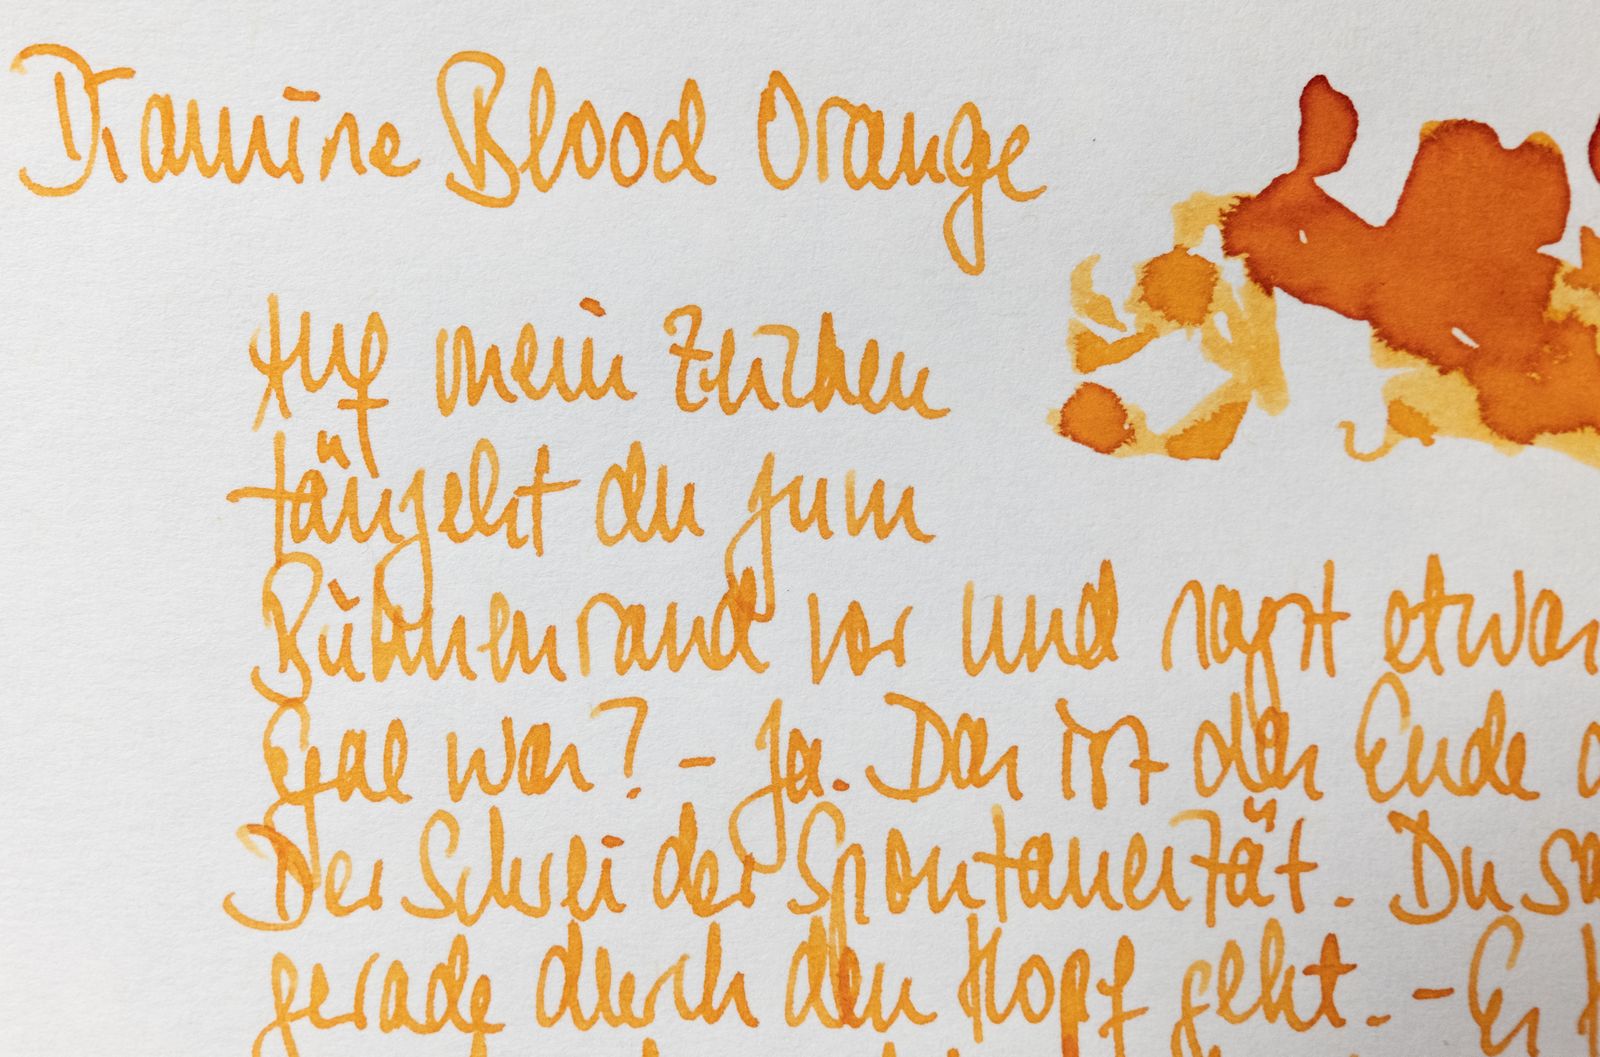 Diamine Blood Orange
Auf mein Zeichen
tänzelst du zum
Bühnenrand vor und sagst etwas
Egal was? - Ja. Das ist das Ende
Der Schrei der Spontaneität. Du
gerade durch den Kopf geht. -